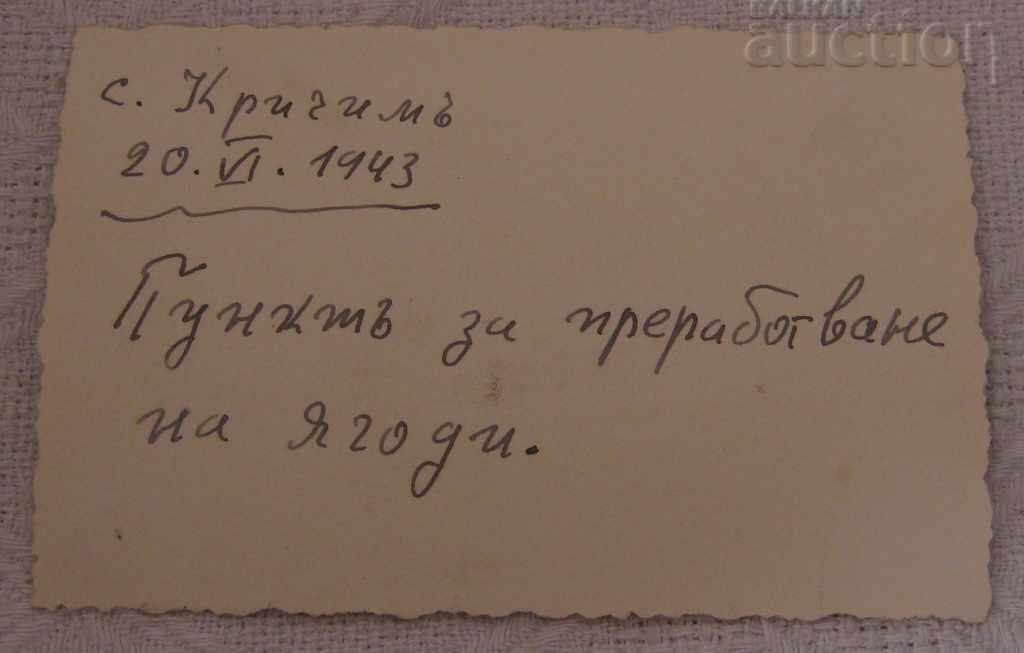 BALKAN
auction
с. Кричимъ
20. VI. 1943
Пунктъ за преработване
на ягоди.